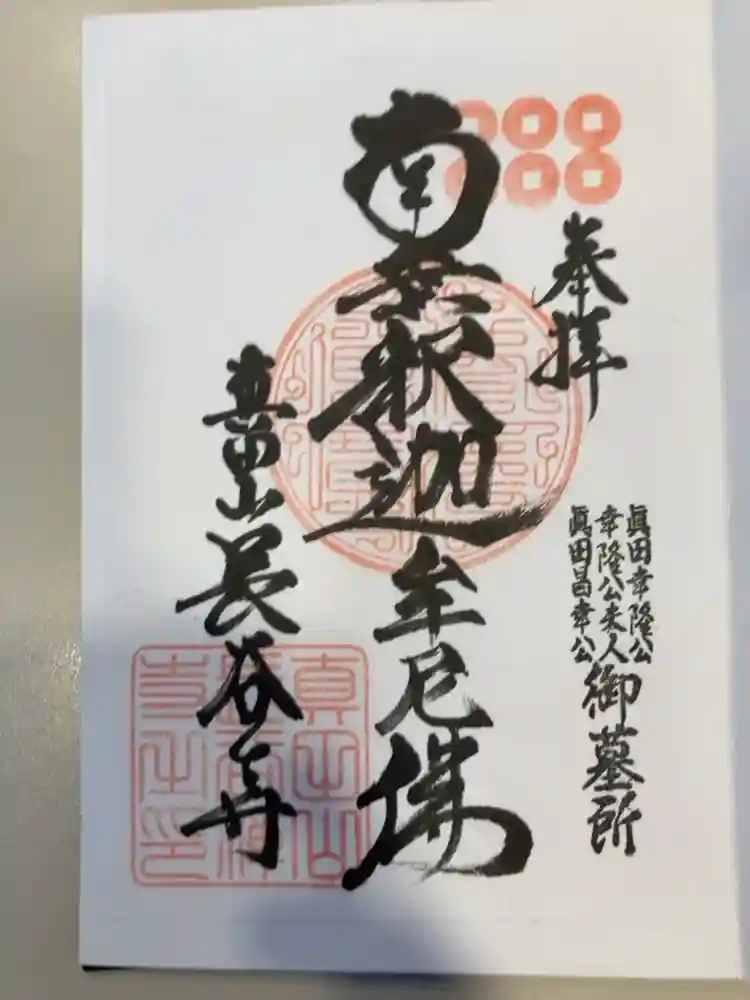 奉拝
眞田幸隆公
幸隆公夫人
眞田昌幸公
御墓所
南無釈迦牟尼佛
真田山
長谷寺